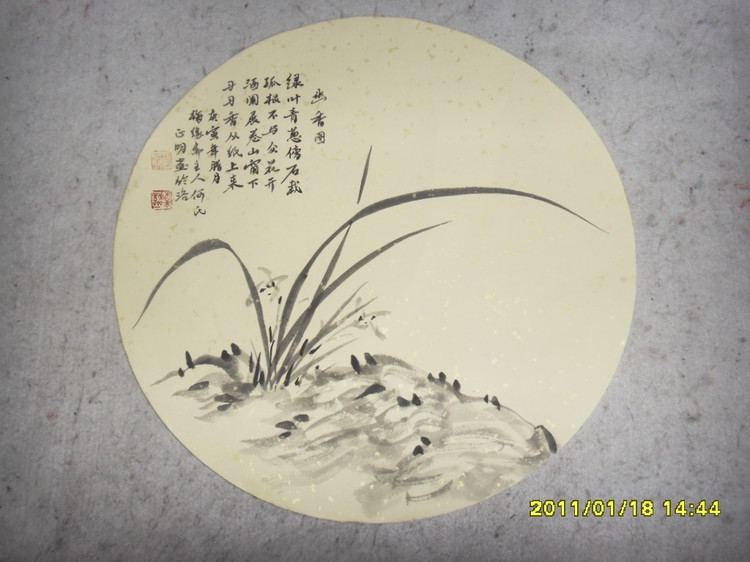 幽香图
绿叶青葱傍石栽
孤根不与众花开
酒阑展卷山窗下
习习香从纸上来
庚寅年腊月
主人何氏
正明画於洛
2011/01/18 14:44